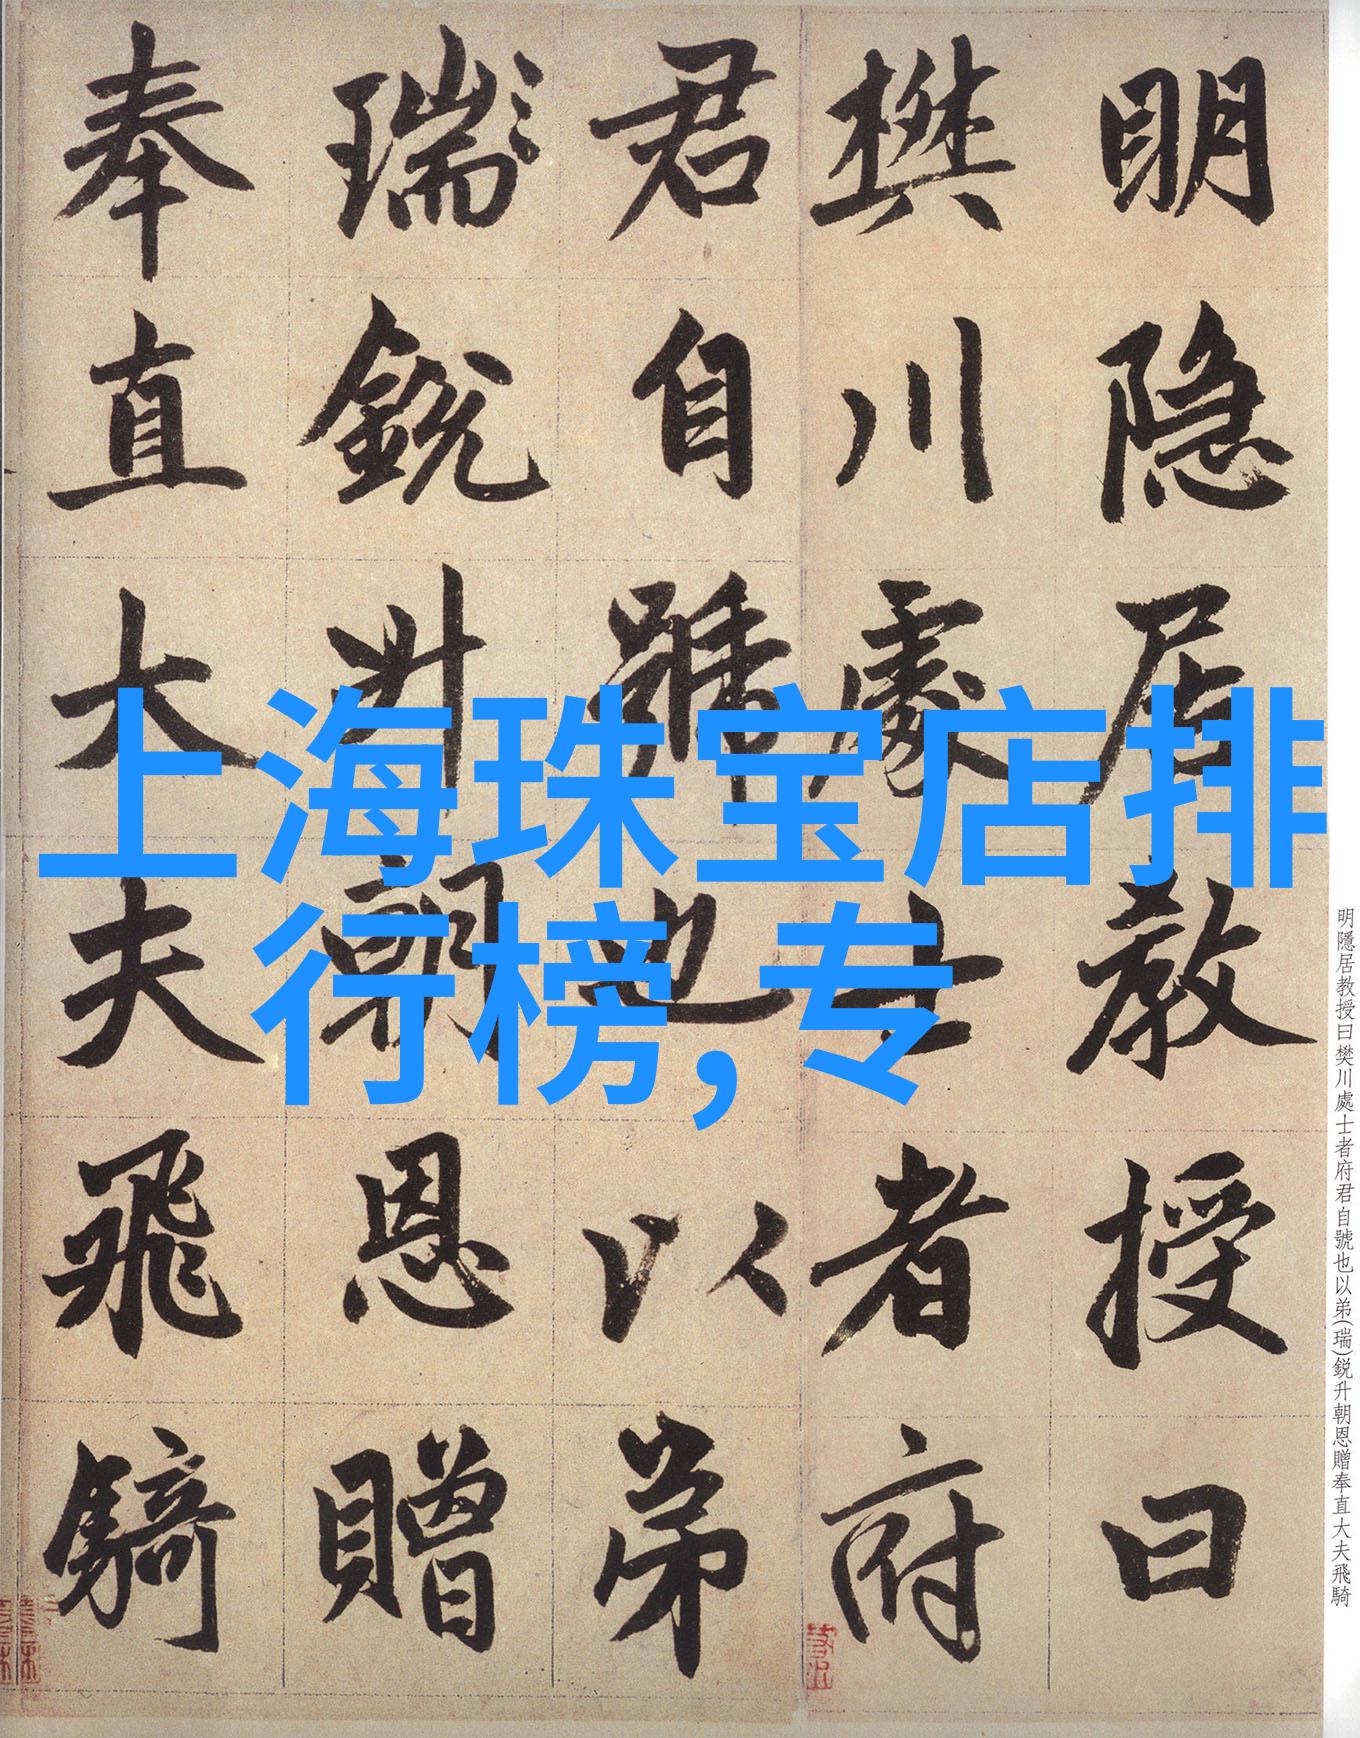 明隐居教授曰
樊川處士者府
君自號也以弟
瑞銳升朝恩贈
奉直大夫飛騎
上海珠宝店排
行榜,专
明隱居教授曰樊川處士者府君自號也以弟(瑞)鋭升朝恩贈奉直大夫飛騎